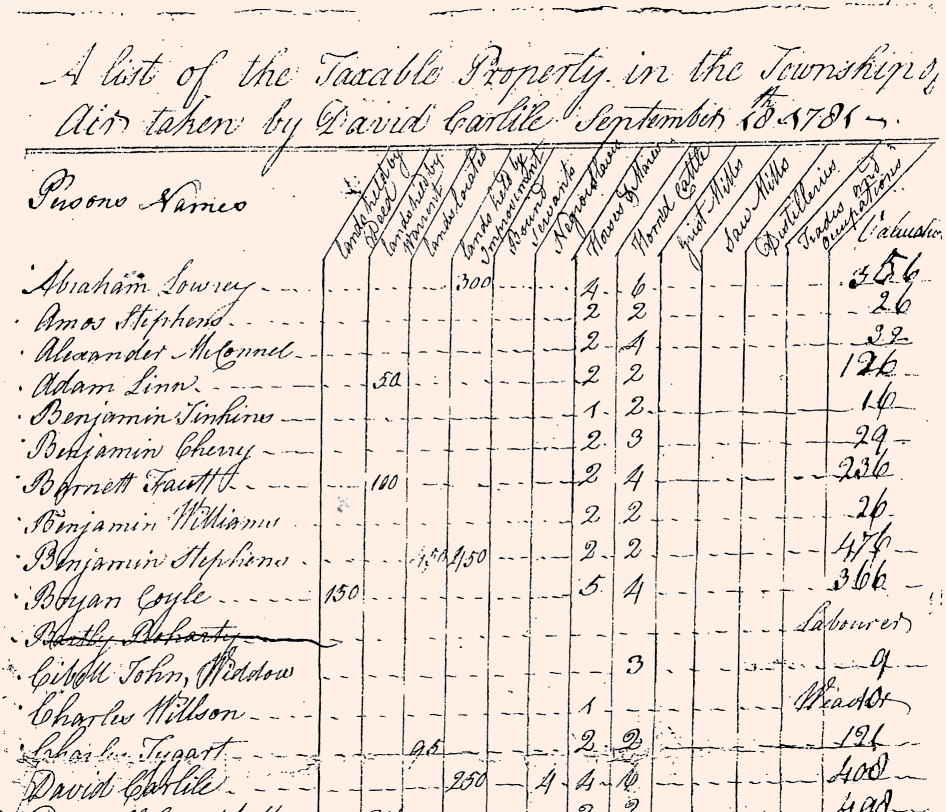 A list of the Taxable Property in the Township of
Air taken by David Carlile September 18th 1781
Persons Names
Lands held by Deed
Lands held by Warrent
Lands located
Lands held by Improvement
Bound Servants
Negro Slaves
Horses & Mares
Horned Cattle
Grist Mills
Saw Mills
Distilleries
Trades and occupations
Valuation
Abraham Lowrey 300 4 6 356
Amos Stephens 2 2 26
Alexander McConnel 2 4 32
Adam Linn 50 2 2 126
Benjamin Jinkins 1 2 16
Benjamin Cherry 2 3 29
Barnett Fautt 100 2 4 236
Benjamin Williams 2 2 26
Benjamin Stephens 150 450 2 2 476
Bryan Coyle 150 5 4 366
Bartly Doharty Labourer
Cibell John, Widdow 3 9
Charles Willson 1 Weaver
Charles Tygart 95 2 2 121
David Carlile 250 4 4 408
498